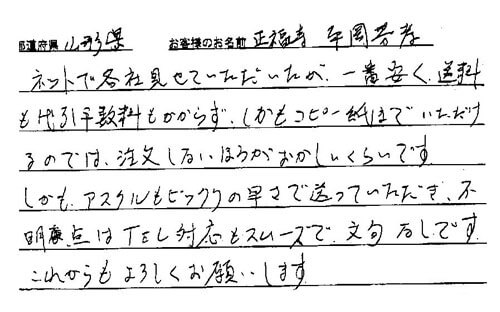 都道府県 山形県 お客様のお名前 正福寺 平岡芳孝
ネットで各社見せていただいたが、一番安く、送料
も代引手数料もかからず、しかもコピー紙までいただけ
るのでは、注文しないほうがおかしいくらいです
しかも、アスクルもビックリの早さで送っていただき、不
明療点はTEL対応もスムーズで、文句なしです
これからもよろしくお願いします